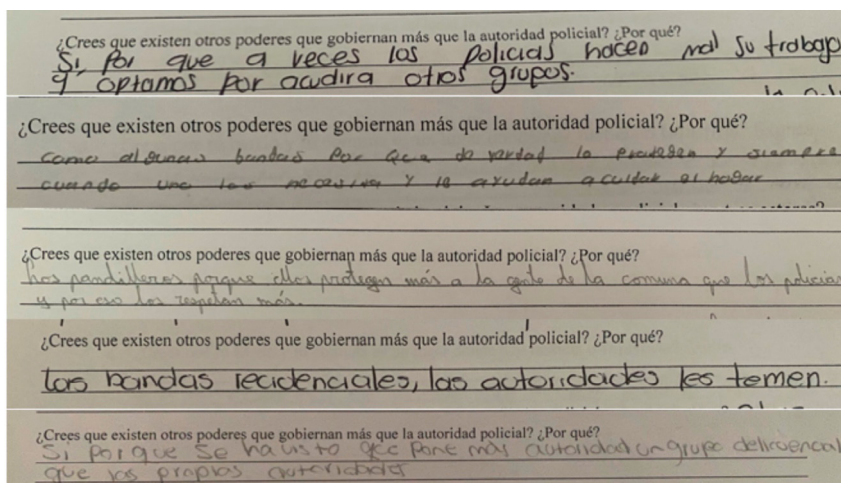 ¿Crees que existen otros poderes que gobiernan más que la autoridad policial? ¿Por qué?
Si, Por que a veces los policias hacen mal su trabajo
y optamos por acudira otros grupos.
¿Crees que existen otros poderes que gobiernan más que la autoridad policial? ¿Por qué?
como algunas bandas Por que de verdad lo protegen y siempre
cuando uno los necesita y le ayudan a cuidar el hogar
¿Crees que existen otros poderes que gobiernan más que la autoridad policial? ¿Por qué?
Los pandilleros porque ellos protegen más a la gente de la comuna que los policias
y por eso los respetan más.
¿Crees que existen otros poderes que gobiernan más que la autoridad policial? ¿Por qué?
Las bandas recidenciales, las autoridades les temen.
¿Crees que existen otros poderes que gobiernan más que la autoridad policial? ¿Por qué?
Si porque se ha visto que pone más autoridad un grupo delicuencal
que las propias autoridades